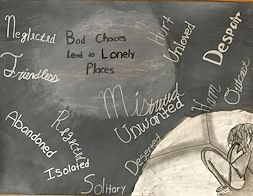 Neglected
Friendless
Bad Choices
Lead to Lonely
Places
Hurt
Unloved
Despair
Outcast
Unwanted
Abandoned
Rejected
Isolated
Deserted
Solitary